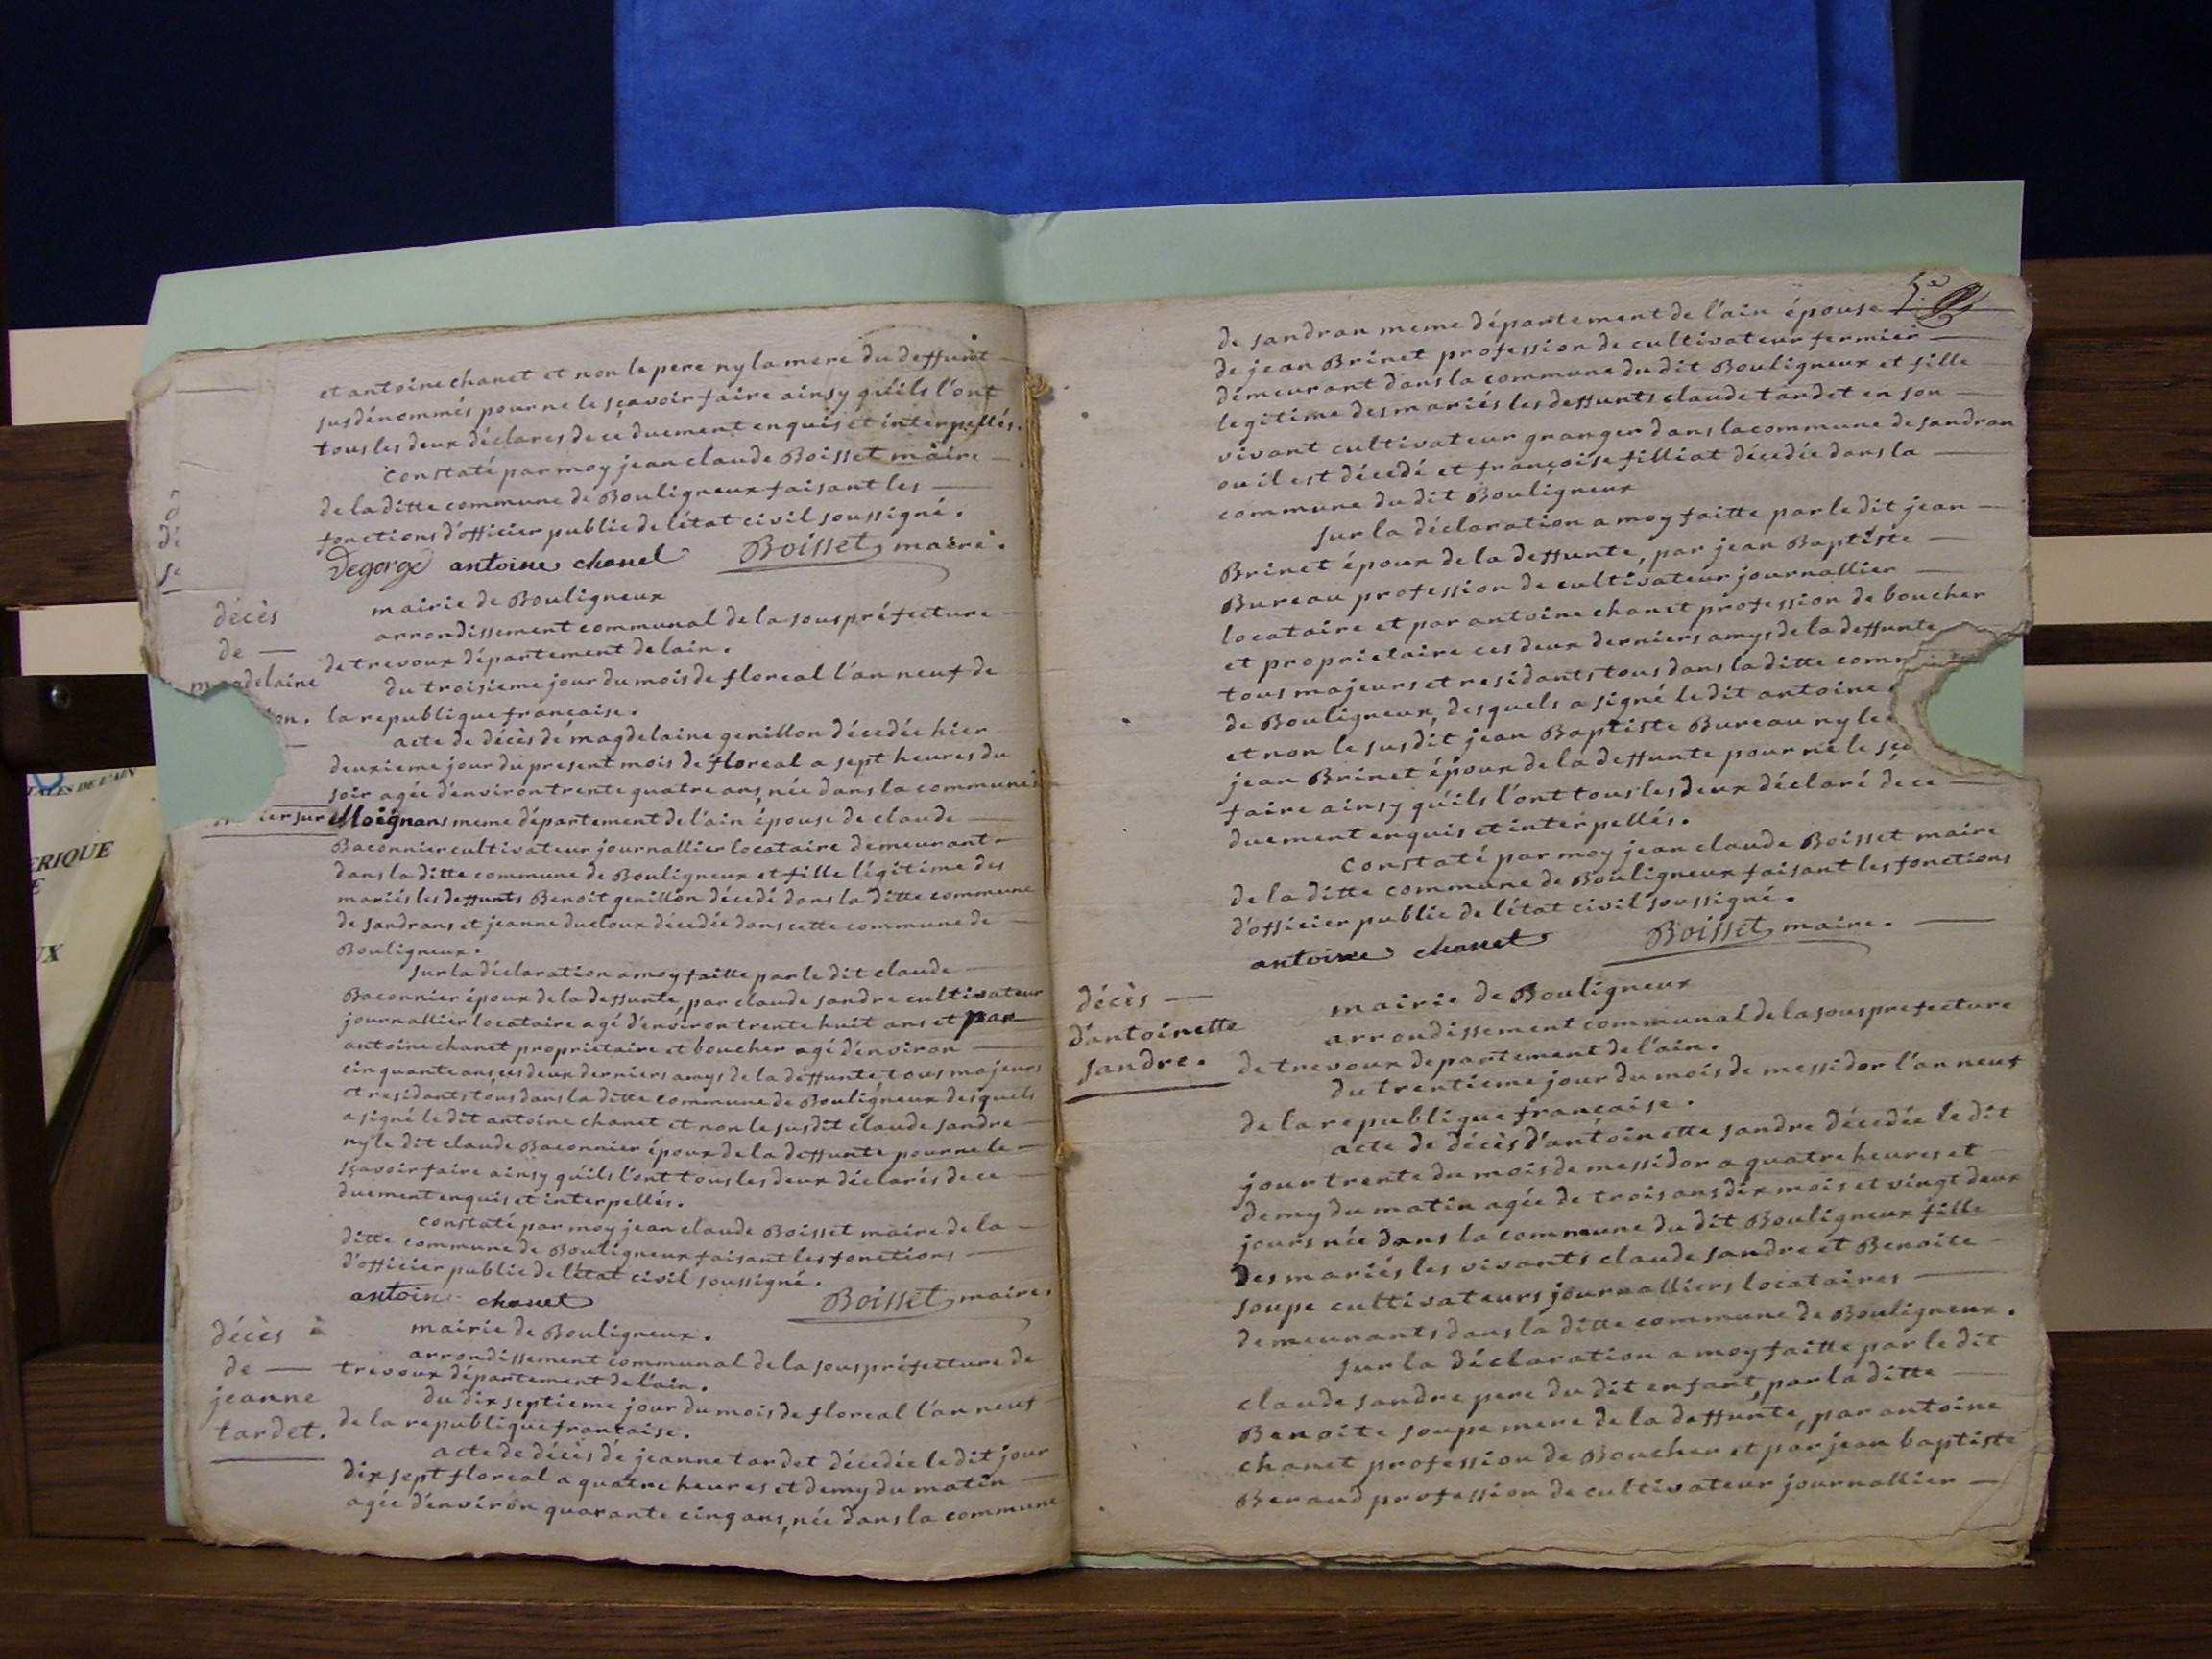 et antoine chanet et non le pere ny la mere du deffunt
susdénommés pour ne le sçavoir faire ainsy qu'ils l'ont
tous les deux déclarés de ce duement enquis et interpellés.
constaté par moy jean claude Boisset maire
de la ditte commune de Bouligneux faisant les
fonctions d'officier public de l'état civil soussigné.
Degorge antoine chanet Boisset maire.
décès
de
magdelaine
mairie de Bouligneux
arrondissement communal de la sous préfecture
de trevoux département de lain.
du troisieme jour du mois de floreal l'an neuf de
la republique française.
acte de décès de magdelaine genillon décedée hier
deuxieme jour du present mois de floreal a sept heures du
soir agée d'environ trente quatre ans, née dans la commune
ier sur Moignans meme département de l'ain épouse de claude
Baconnier cultivateur journallier locataire demeurant
dans la ditte commune de Bouligneux et fille légitime des
mariés les deffunts Benoit genillon décedé dans la ditte commune
de sandrans et jeanne ducloux décedée dans cette commune de
Bouligneux.
sur la déclaration a moy faitte par le dit claude
Baconnier époux de la deffunte, par claude sandre cultivateur
journallier locataire agé d'environ trente huit ans et par
antoine chanet propriétaire et boucher agé d'environ
cinquante ans, ces deux derniers amys de la deffunte, tous majeurs
et residants tous dans la ditte commune de Bouligneux desquels
a signé le dit antoine chanet et non le susdit claude sandre
ny le dit claude Baconnier époux de la deffunte pour ne le
sçavoir faire ainsy qu'ils l'ont tous les deux déclarés de ce
duement enquis et interpellés.
constaté par moy jean claude Boisset maire de la
ditte commune de Bouligneux faisant les fonctions
d'officier public de l'état civil soussigné.
antoine chanet Boisset maire.
décès
de
jeanne
tardet.
mairie de Bouligneux.
arrondissement communal de la sous préfecture de
trevoux département de l'ain.
du dix septieme jour du mois de floreal l'an neuf
de la republique française.
acte de décès de jeanne tardet décedée le dit jour
dix sept floreal a quatre heures et demy du matin
agée d'environ quarante cinq ans, née dans la commune
de sandran meme département de l'ain épouse
de jean Brinet profession de cultivateur fermier
demeurant dans la commune du dit Bouligneux et fille
legitime des mariés les deffunts claude tardet en son
vivant cultivateur granger dans la commune de sandran
ou il est décedé et françoise filliat décedée dans la
commune du dit Bouligneux
sur la déclaration a moy faitte par le dit jean
Brinet époux de la deffunte, par jean Baptiste
Bureau profession de cultivateur journallier
locataire et par antoine chanet profession de boucher
et proprietaire ces deux derniers amys de la deffunte
tous majeurs et residants tous dans la ditte comm
de Bouligneux, desquels a signé le dit antoine
et non le susdit jean Baptiste Bureau ny le
jean Brinet époux de la deffunte pour ne le sça
faire ainsy qu'ils l'ont tous les deux déclaré de ce
duement enquis et interpellés.
constaté par moy jean claude Boisset maire
de la ditte commune de Bouligneux faisant les fonctions
d'officier public de l'état civil soussigné.
antoine chanet Boisset maire.
décès
d'antoinette
sandre.
mairie de Bouligneux
arrondissement communal de la sous prefecture
de trevoux departement de l'ain.
du trentieme jour du mois de messidor l'an neuf
de la republique française.
acte de décès d'antoinette sandre décedée le dit
jour trente du mois de messidor a quatre heures et
demy du matin agée de trois ans dix mois et vingt deux
jours née dans la commune du dit Bouligneux fille
des mariés les vivants claude sandre et Benoite
soupe cultivateurs journalliers locataires
demeurants dans la ditte commune de Bouligneux.
sur la déclaration a moy faitte par le dit
claude sandre pere du dit enfant, par la ditte
Benoite soupe mere de la deffunte, par antoine
chanet profession de Boucher et par jean baptiste
Beraud profession de cultivateur journallier
ERIQUE
UX